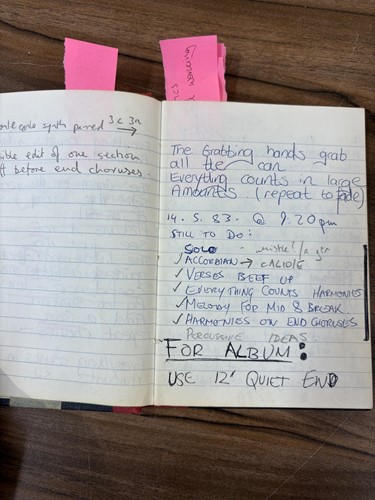 synth pared 3c 3m →
edit of one section
before end choruses
The Grabbing hands grab
all the can
Everything counts in large
Amounts (repeat to fade)
14. 5. 83. @ 9.20pm
STILL TO DO:
SOLO -
✓ ACCORDIAN →
✓ VERSES BEEF UP
✓ EVERYTHING COUNTS HARMONIES
✓ MELODY FOR MID 8 BREAK
✓ HARMONIES ON END CHORUSES
PERCUSSIVE IDEAS
FOR ALBUM:
USE 12" QUIET END